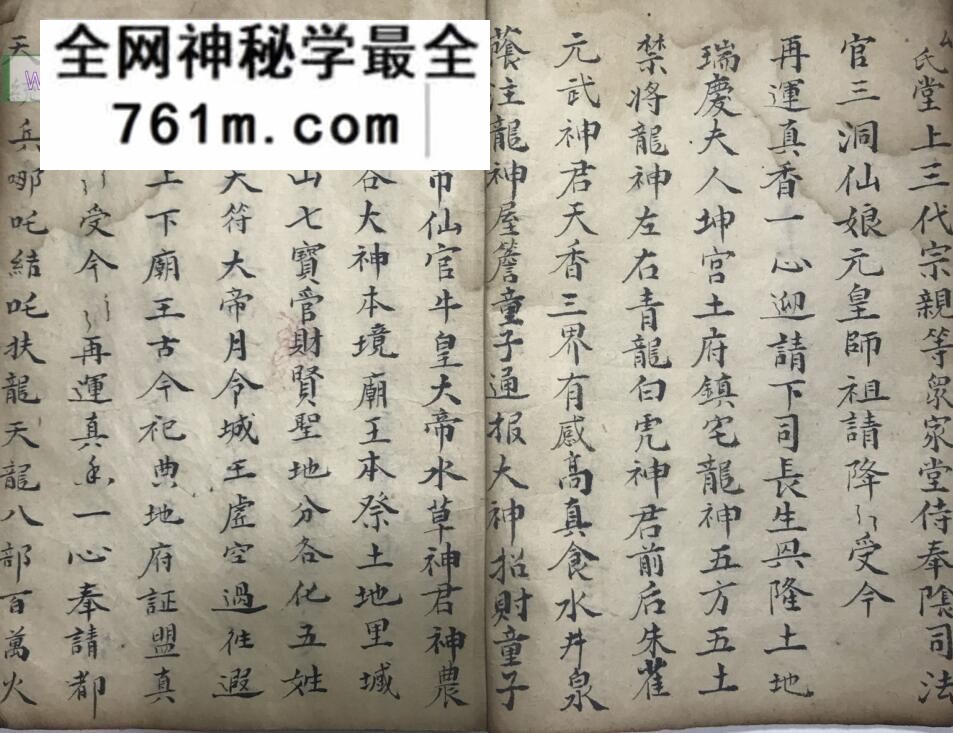 全网神秘学最全
761m.com
W
氏堂上三代宗親等眾家堂侍奉陰司法
官三洞仙娘元皇師祖請降〻受今
再運真香一心迎請下司長生興隆土地
瑞慶夫人坤宮土府鎮宅龍神五方五土
禁將龍神左右青龍白虎神君前后朱雀
元武神君天香三界有感高真食水井泉
蔭注龍神屋簷童子通报大神招財童子
帝仙官牛皇大帝水草神君神農
谷大神本境廟王本祭土地里域
山七寶管財賢聖地分各化五姓
天符大帝月令城王虛空過往遐
上下廟王古今祀典地府証盟真
〻受今〻再運真香一心奉請都
天 兵哪吒結吒扶龍天龍八部百萬火